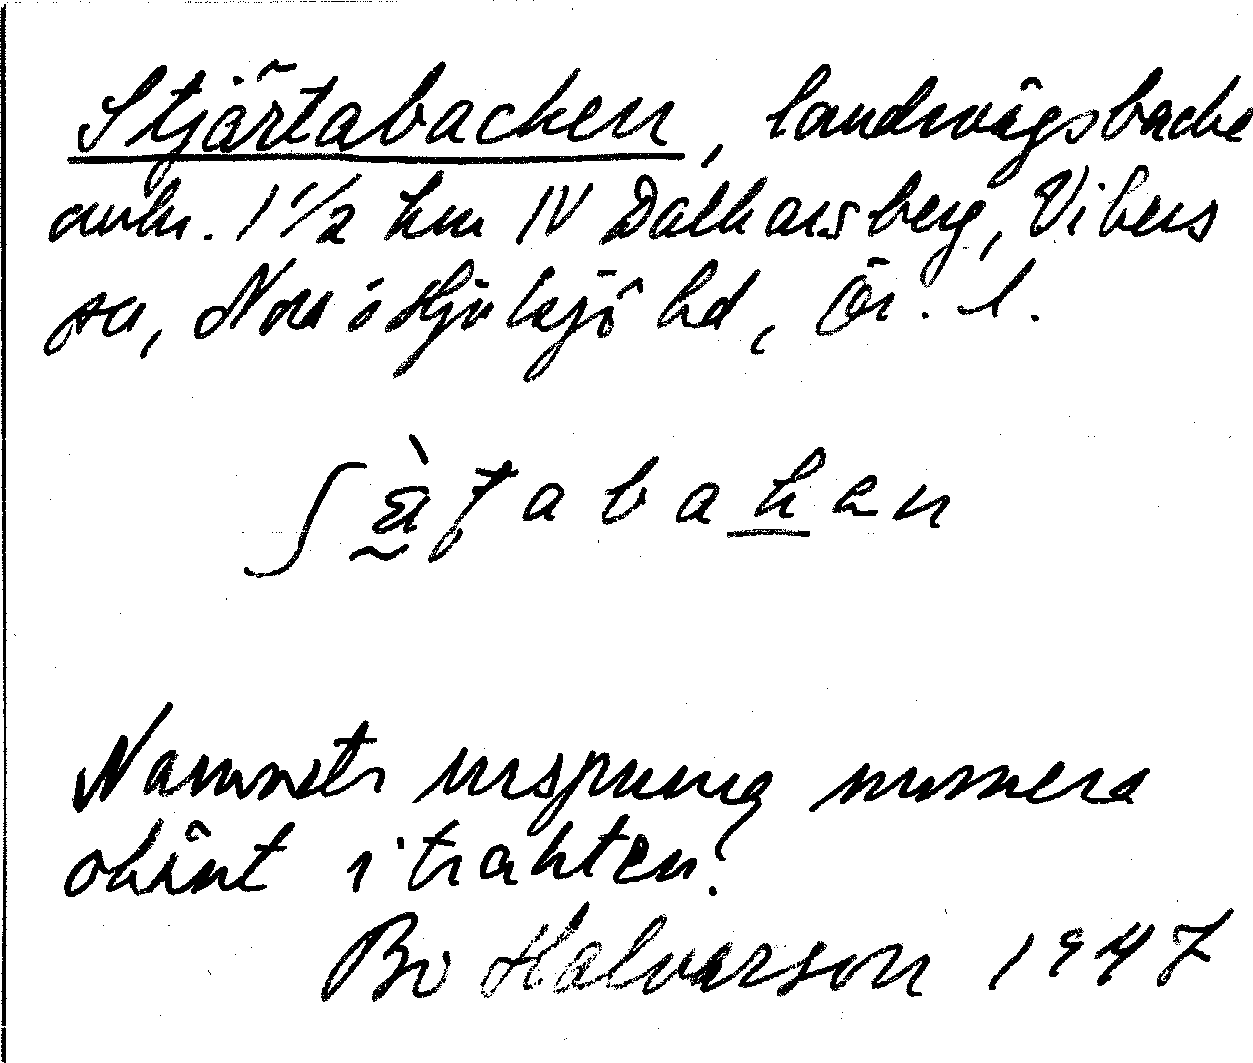 Stjärtabacken, landsvägsbacke
omkr. 1 1/2 km NV Dalkarsberg, Vikers
sn, Nora ö Hjulsjö hd, Ör. l.
Namnets ursprung numera
okänt i trakten.
Bo Halvarson 1947